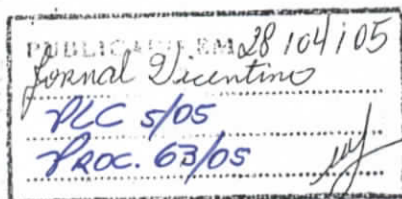 PUBLICADO EM 28/04/05
Jornal Vicentino
PLC 5/05
PROC. 63/05